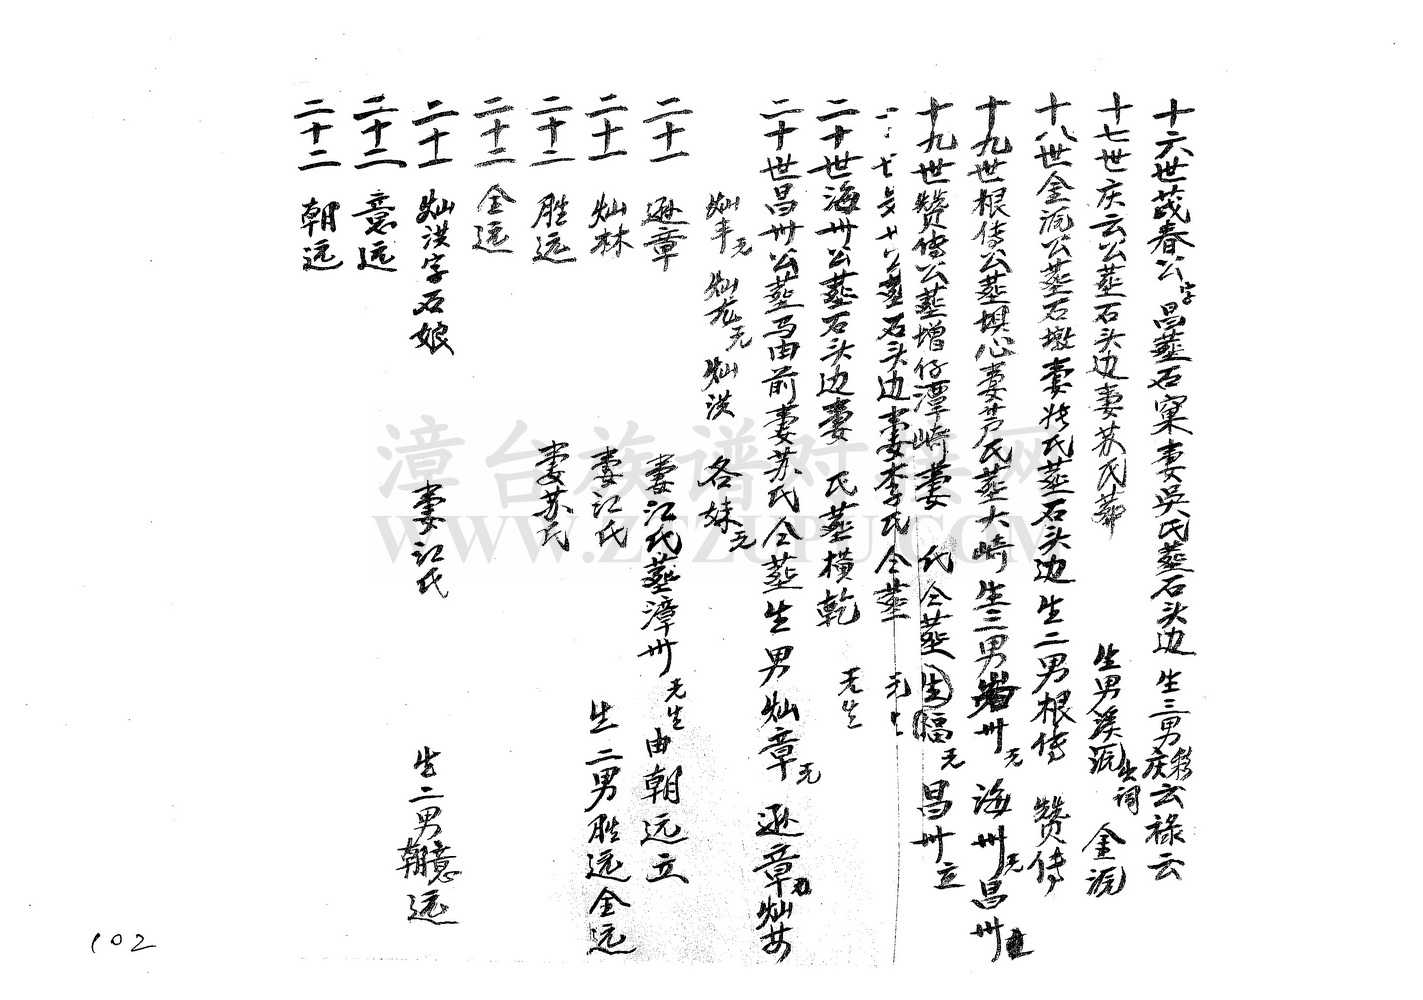 十六世茂春公字昌葬石窠妻吳氏葬石头边 生三男庆云禄云
十七世庆云公葬石头边妻苏氏葬 生男溪派 金派
十八世金派公葬石墩妻 氏葬石头边 生二男根传 赞传
十九世根传公葬坝心妻芦氏葬大崎 生三男 卅无 海卅无 昌卅
十九世赞传公葬增仔潭崎妻 氏仝葬 生福无 昌卅立
葬石头边妻李氏仝葬 无
二十世海卅公葬石头边妻 氏葬横乾 无生
二十世昌卅公葬马由前妻苏氏仝葬 生男灿章无 逊章 灿
灿丰无 灿龙无 灿洪 各妹无
二十一 逊章 妻江氏葬漳卅 无生 由朝远立
二十一 灿林 妻江氏 生二男胜远 全远
二十二 胜远 妻苏氏
二十二 全远
二十一 灿洪字石娘 妻江氏 生二男朝 意远
二十二 意远
二十二 朝远
102
漳台族谱对接网
WWW.ZTZUPU.COM